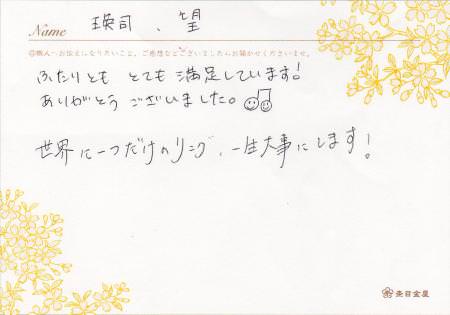 Name 瑛司、望
◎職人へお伝えになりたいこと、ご感想などございましたらお聞かせくださいませ。
ふたりとも とても 満足しています!
ありがとう ございました。
世界に一つだけのリング、一生大事にします!
杢目金屋